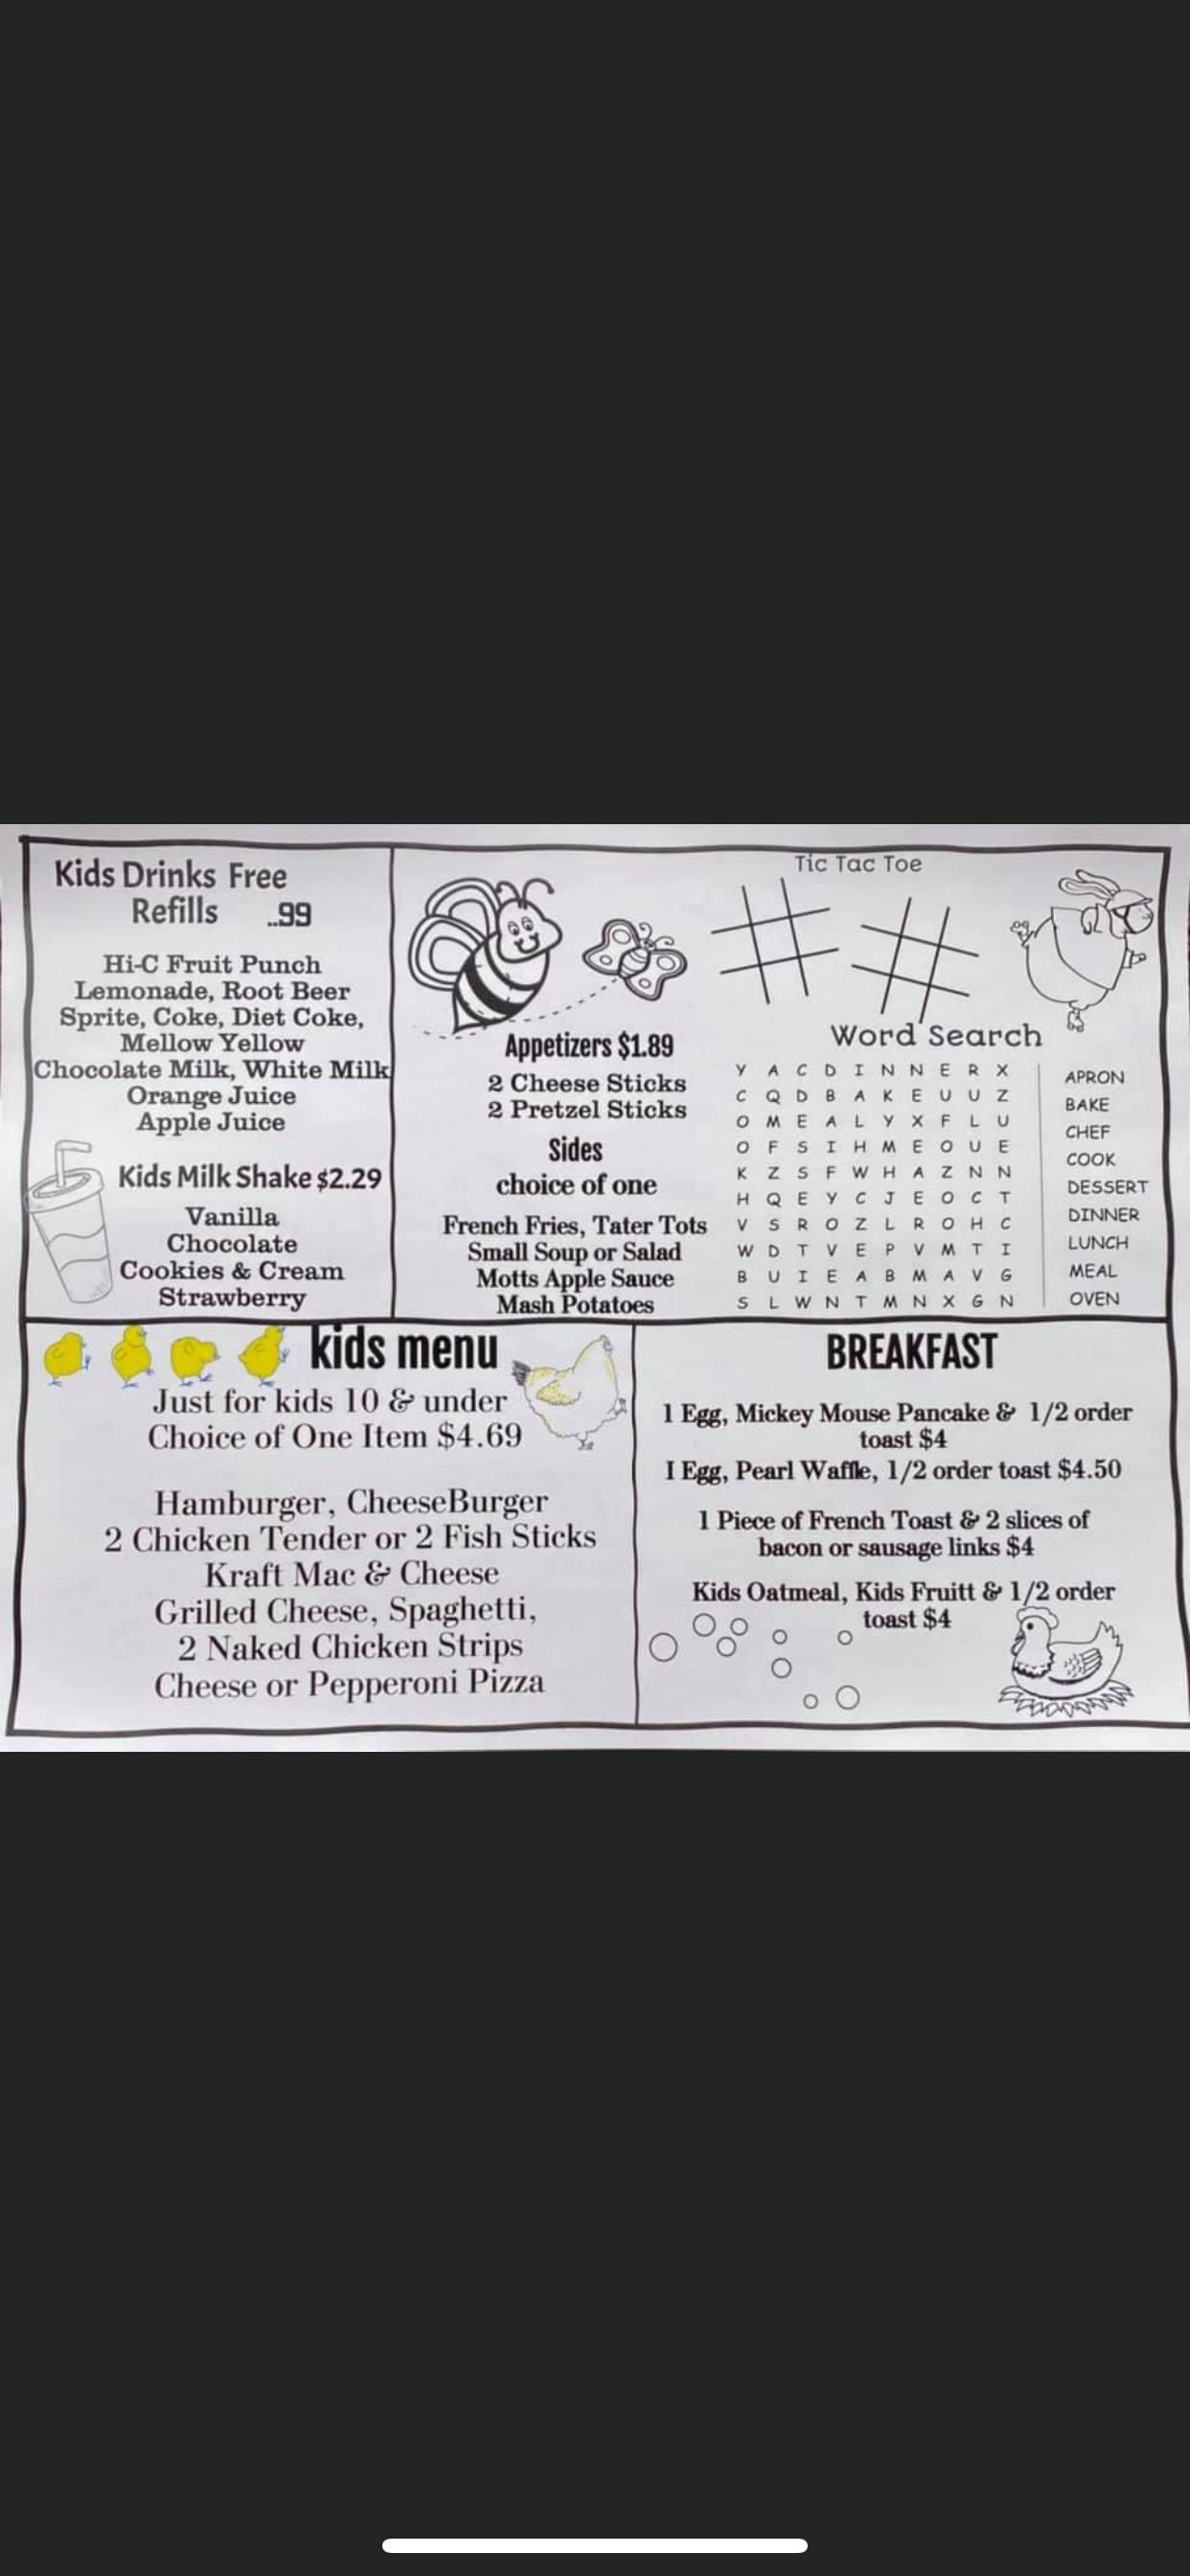 Kids Drinks Free
Refills ..99
Hi-C Fruit Punch
Lemonade, Root Beer
Sprite, Coke, Diet Coke,
Mellow Yellow
Chocolate Milk, White Milk
Orange Juice
Apple Juice
Kids Milk Shake $2.29
Vanilla
Chocolate
Cookies & Cream
Strawberry
Appetizers $1.89
2 Cheese Sticks
2 Pretzel Sticks
Sides
choice of one
French Fries, Tater Tots
Small Soup or Salad
Motts Apple Sauce
Mash Potatoes
Tic Tac Toe
Word Search
Y A C D I N N E R X
C Q D B A K E U U Z
O M E A L Y X F L U
O F S I H M E O U E
K Z S F W H A Z N N
H Q E Y C J E O C T
V S R O Z L R O H C
W D T V E P V M T I
B U I E A B M A V G
S L W N T M N X G N
APRON
BAKE
CHEF
COOK
DESSERT
DINNER
LUNCH
MEAL
OVEN
kids menu
Just for kids 10 & under
Choice of One Item $4.69
Hamburger, CheeseBurger
2 Chicken Tender or 2 Fish Sticks
Kraft Mac & Cheese
Grilled Cheese, Spaghetti,
2 Naked Chicken Strips
Cheese or Pepperoni Pizza
BREAKFAST
1 Egg, Mickey Mouse Pancake & 1/2 order
toast $4
I Egg, Pearl Waffle, 1/2 order toast $4.50
1 Piece of French Toast & 2 slices of
bacon or sausage links $4
Kids Oatmeal, Kids Fruitt & 1/2 order
toast $4